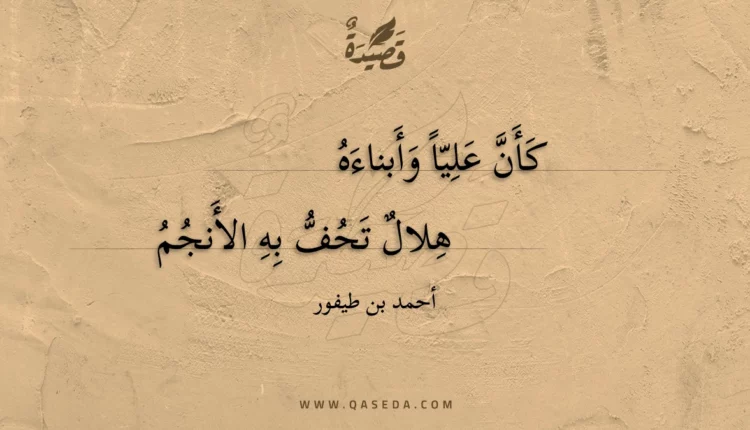 قَصِيدَةٌ
كَأَنَّ عَلِيّاً وَأَبناءَهُ
هِلالٌ تَحُفُّ بِهِ الأَنجُمُ
أحمد بن طيفور
WWW.QASEDA.COM